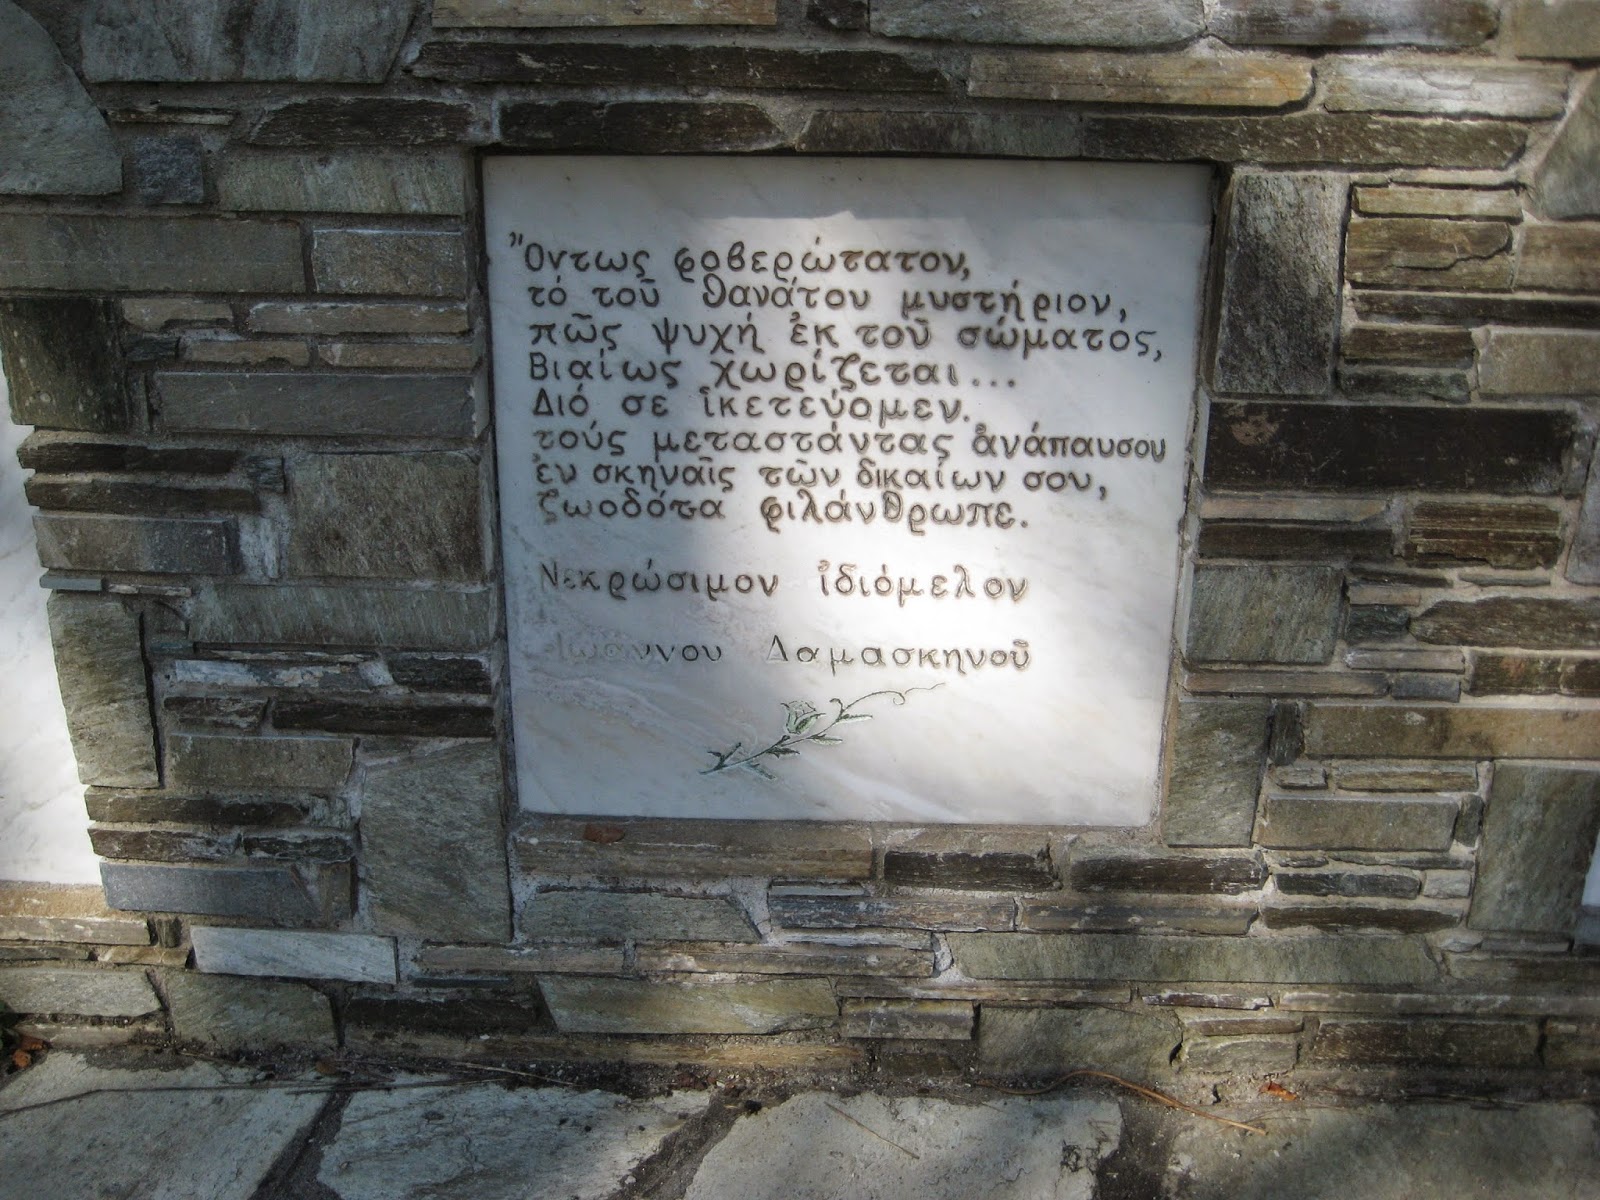 Ὄντως φοβερώτατον,
τό τοῦ θανάτου μυστήριον,
πῶς ψυχή ἐκ τοῦ σώματος,
Βιαίως χωρίζεται...
Διό σε ἱκετεύομεν.
τούς μεταστάντας ἀνάπαυσου
ἐν σκηναῖς τῶν δικαίων σου,
ζωοδότα φιλάνθρωπε.
Νεκρώσιμον ἰδιόμελον
Ἰωάννου Δαμασκηνοῦ